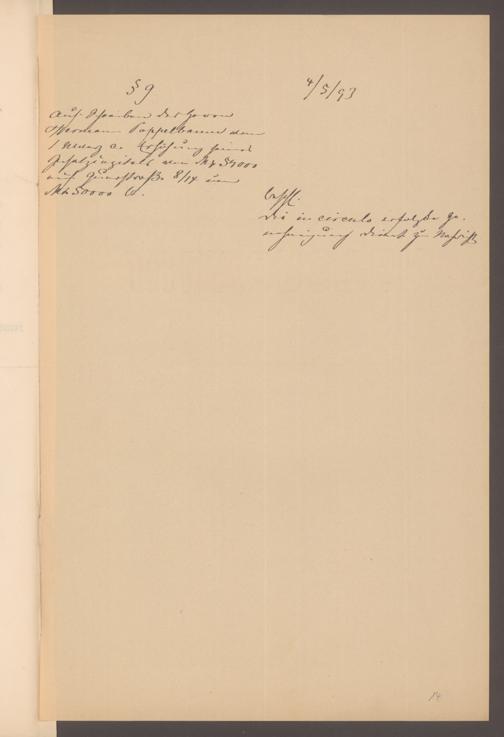 § 9
4/5/93
Auf Schreiben des Herrn
Hermann Poppelbaum vom
1 d. Erhöhung seines
von Mk 35000
auf 8/14 um
Mk 50000 W.
beschl.
Die in circulo erfolgte Ge-
nehmigung dient zur Nachricht
14